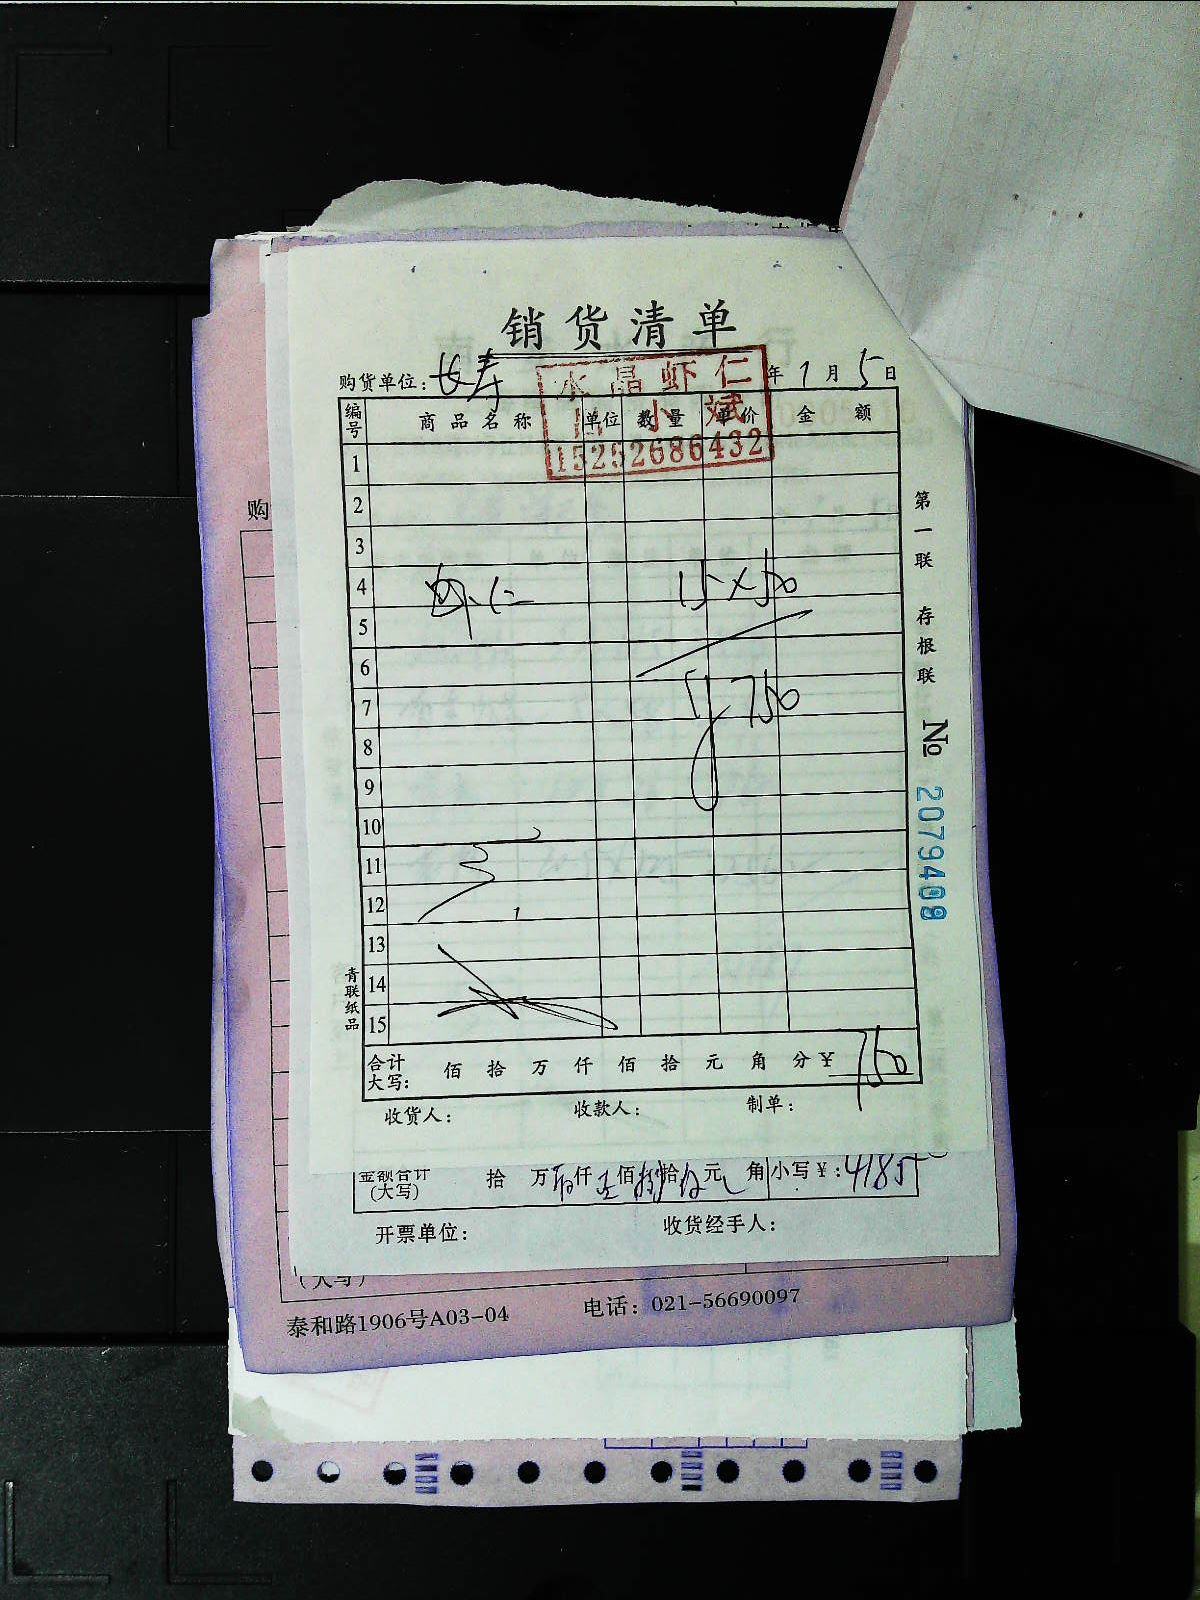 销货清单
购货单位：长寿 年 1 月 5 日
水晶虾仁
小斌
15252686432
编号 商品名称 单位 数量 单价 金额
1
2
3
4 虾仁 15×50
5
6
7 750
8
9
10
11
12
13
14
15
合计大写： 佰 拾 万 仟 佰 拾 元 角 分 ¥ 750
收货人： 收款人： 制单：
第一联 存根联
No 2079409
青联纸品
购
金额合计(大写) 拾 万 仟 佰 拾 元 角 小写¥：4185
开票单位： 收货经手人：
(大写)
泰和路1906号A03-04 电话：021-56690097